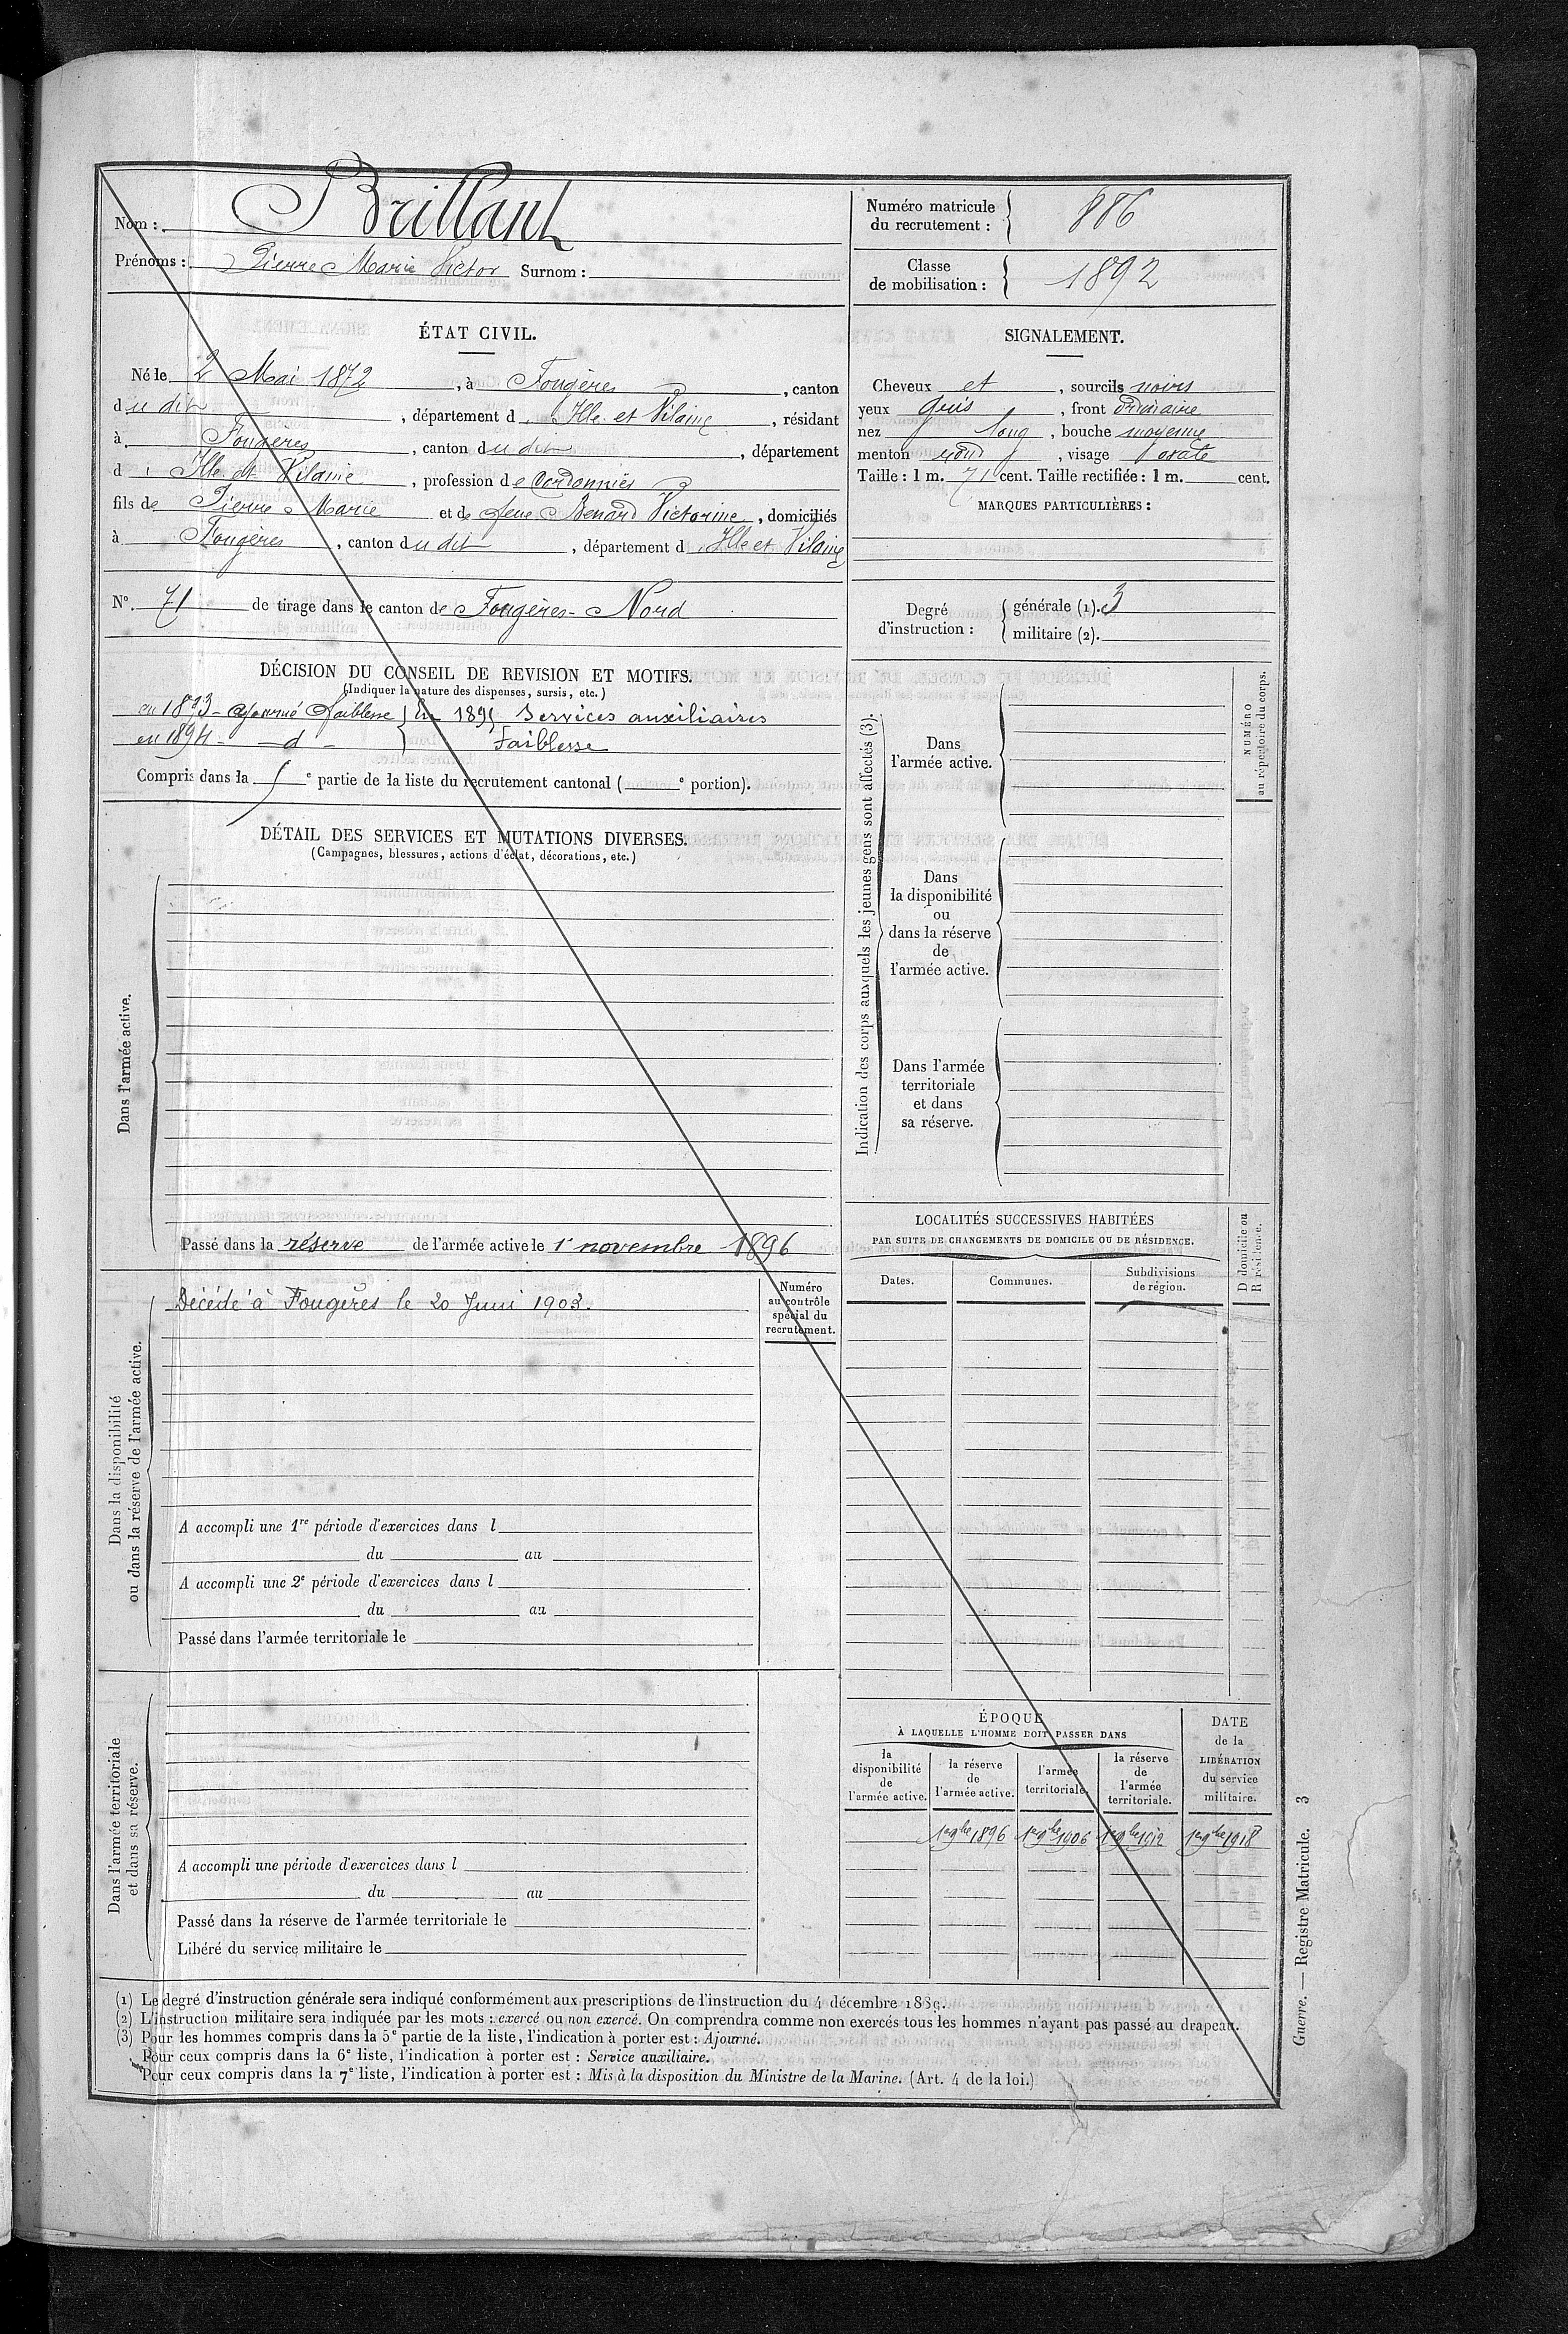 Nom : Brillant
Prénoms : Pierre Marie Victor Surnom :
Numéro matricule du recrutement : 886
Classe de mobilisation : 1892
ÉTAT CIVIL.
Né le 2 Mai 1872, à Fougères, canton
du dit, département d Ille et Vilaine, résidant
à Fougères, canton du dit, département
d Ille et Vilaine, profession de Cordonnier
fils de Pierre Marie et de feue Benard Victorine, domiciliés
à Fougères, canton du dit, département d Ille et Vilaine
N° 71 de tirage dans le canton de Fougères-Nord
SIGNALEMENT.
Cheveux et, sourcils noirs
yeux gris, front ordinaire
nez long, bouche moyenne
menton rond, visage ovale
Taille : 1 m. 71 cent. Taille rectifiée : 1 m. cent.
MARQUES PARTICULIÈRES :
Degré d'instruction :
générale (1). 3
militaire (2).
DÉCISION DU CONSEIL DE REVISION ET MOTIFS.
(Indiquer la nature des dispenses, sursis, etc.)
en 1893 - ajourné faiblesse } En 1895 Services auxiliaires
en 1894 - d - faiblesse
Compris dans la e partie de la liste du recrutement cantonal ( e portion).
DÉTAIL DES SERVICES ET MUTATIONS DIVERSES.
(Campagnes, blessures, actions d'éclat, décorations, etc.)
Dans l'armée active.
Passé dans la réserve de l'armée active le 1er novembre 1896
Dans la disponibilité
ou dans la réserve de l'armée active.
Décédé à Fougères le 20 Juin 1903.
Numéro
au contrôle
spécial du
recrutement.
A accompli une 1re période d'exercices dans l
du au
A accompli une 2e période d'exercices dans l
du au
Passé dans l'armée territoriale le
Dans l'armée territoriale
et dans sa réserve.
A accompli une période d'exercices dans l
du au
Passé dans la réserve de l'armée territoriale le
Libéré du service militaire le
Indication des corps auxquels les jeunes gens sont affectés (3).
Dans
l'armée active.
Dans
la disponibilité
ou
dans la réserve
de
l'armée active.
Dans l'armée
territoriale
et dans
sa réserve.
NUMÉRO
au répertoire du corps.
LOCALITÉS SUCCESSIVES HABITÉES
PAR SUITE DE CHANGEMENTS DE DOMICILE OU DE RÉSIDENCE.
Dates. Communes. Subdivisions de région.
D domicile ou
R résidence.
ÉPOQUE
À LAQUELLE L'HOMME DOIT PASSER DANS
la disponibilité de l'armée active.
la réserve de l'armée active.
l'armée territoriale.
la réserve de l'armée territoriale.
DATE de la LIBÉRATION du service militaire.
1er 9bre 1896 1er 9bre 1906 1er 9bre 1912 1er 9bre 1918
(1) Le degré d'instruction générale sera indiqué conformément aux prescriptions de l'instruction du 4 décembre 1889.
(2) L'instruction militaire sera indiquée par les mots : exercé ou non exercé. On comprendra comme non exercés tous les hommes n'ayant pas passé au drapeau.
(3) Pour les hommes compris dans la 5e partie de la liste, l'indication à porter est : Ajourné.
Pour ceux compris dans la 6e liste, l'indication à porter est : Service auxiliaire.
Pour ceux compris dans la 7e liste, l'indication à porter est : Mis à la disposition du Ministre de la Marine. (Art. 4 de la loi.)
Guerre. — Registre Matricule. 3